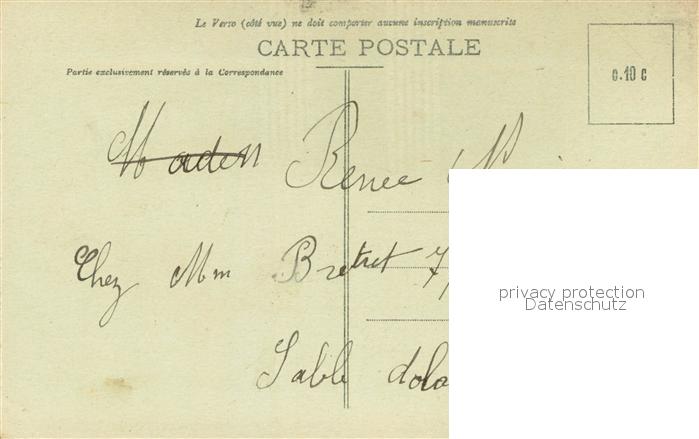 Le Verso (côté vue) ne doit comporter aucune inscription manuscrite
CARTE POSTALE
Partie exclusivement réservée à la Correspondance
0.10 c
Renée
Chez Mm Bretet
privacy protection
Datenschutz
Sable dola